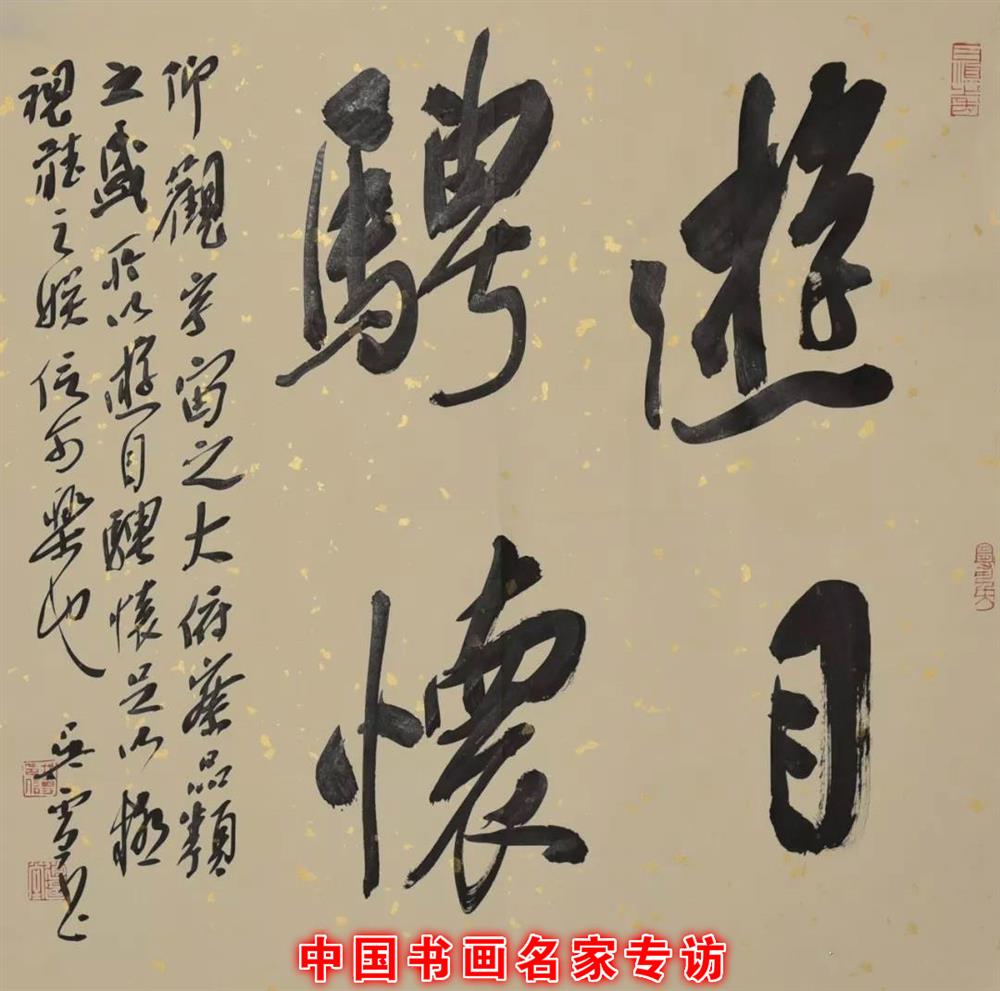 遊目
騁懷
仰觀宇宙之大俯察品類
之盛所以遊目騁懷足以極
視聽之娛信可樂也
吴雪书
中国书画名家专访